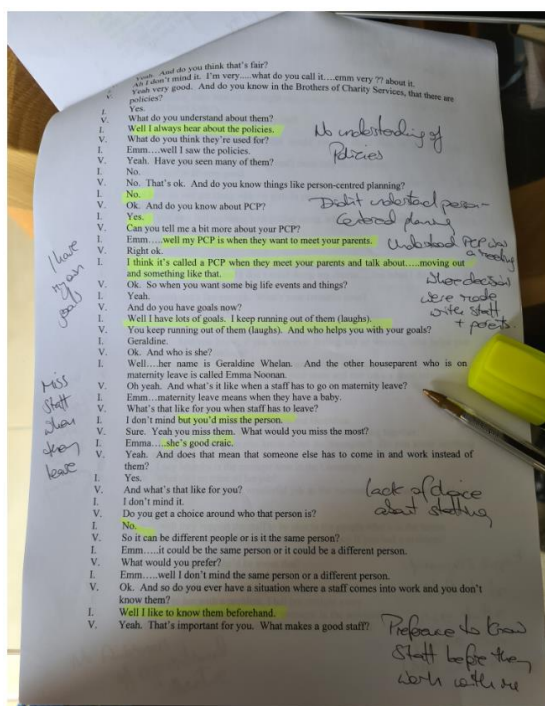 Yeah. And do you think that's fair?
Ah I don't mind it. I'm very.....what do you call it....emm very ?? about it.
V. Yeah very good. And do you know in the Brothers of Charity Services, that there are
policies?
I. Yes.
V. What do you understand about them?
I. Well I always hear about the policies.
V. What do you think they're used for?
I. Emm....well I saw the policies.
V. Yeah. Have you seen many of them?
I. No.
V. No. That's ok. And do you know things like person-centred planning?
I. No.
V. Ok. And do you know about PCP?
I. Yes.
V. Can you tell me a bit more about your PCP?
I. Emm....well my PCP is when they want to meet your parents.
V. Right ok.
I. I think it's called a PCP when they meet your parents and talk about.....moving out
and something like that.
V. Ok. So when you want some big life events and things?
I. Yeah.
V. And do you have goals now?
I. Well I have lots of goals. I keep running out of them (laughs).
V. You keep running out of them (laughs). And who helps you with your goals?
I. Geraldine.
V. Ok. And who is she?
I. Well....her name is Geraldine Whelan. And the other houseparent who is on
maternity leave is called Emma Noonan.
V. Oh yeah. And what's it like when a staff has to go on maternity leave?
I. Emm....maternity leave means when they have a baby.
V. What's that like for you when staff has to leave?
I. I don't mind but you'd miss the person.
V. Sure. Yeah you miss them. What would you miss the most?
I. Emma.....she's good craic.
V. Yeah. And does that mean that someone else has to come in and work instead of
them?
I. Yes.
V. And what's that like for you?
I. I don't mind it.
V. Do you get a choice around who that person is?
I. No.
V. So it can be different people or is it the same person?
I. Emm.....it could be the same person or it could be a different person.
V. What would you prefer?
I. Emm.....well I don't mind the same person or a different person.
V. Ok. And so do you ever have a situation where a staff comes into work and you don't
know them?
I. Well I like to know them beforehand.
V. Yeah. That's important for you. What makes a good staff?
No understanding of
Policies
Didn't understand person-
Centered planning
Understood PCP was
meeting
where decisions
were made
with staff
+ parents.
I have
my own
goals
Miss
staff
when
they
leave
lack of choice
about staffing
Preference to know
Staff before they
work with me